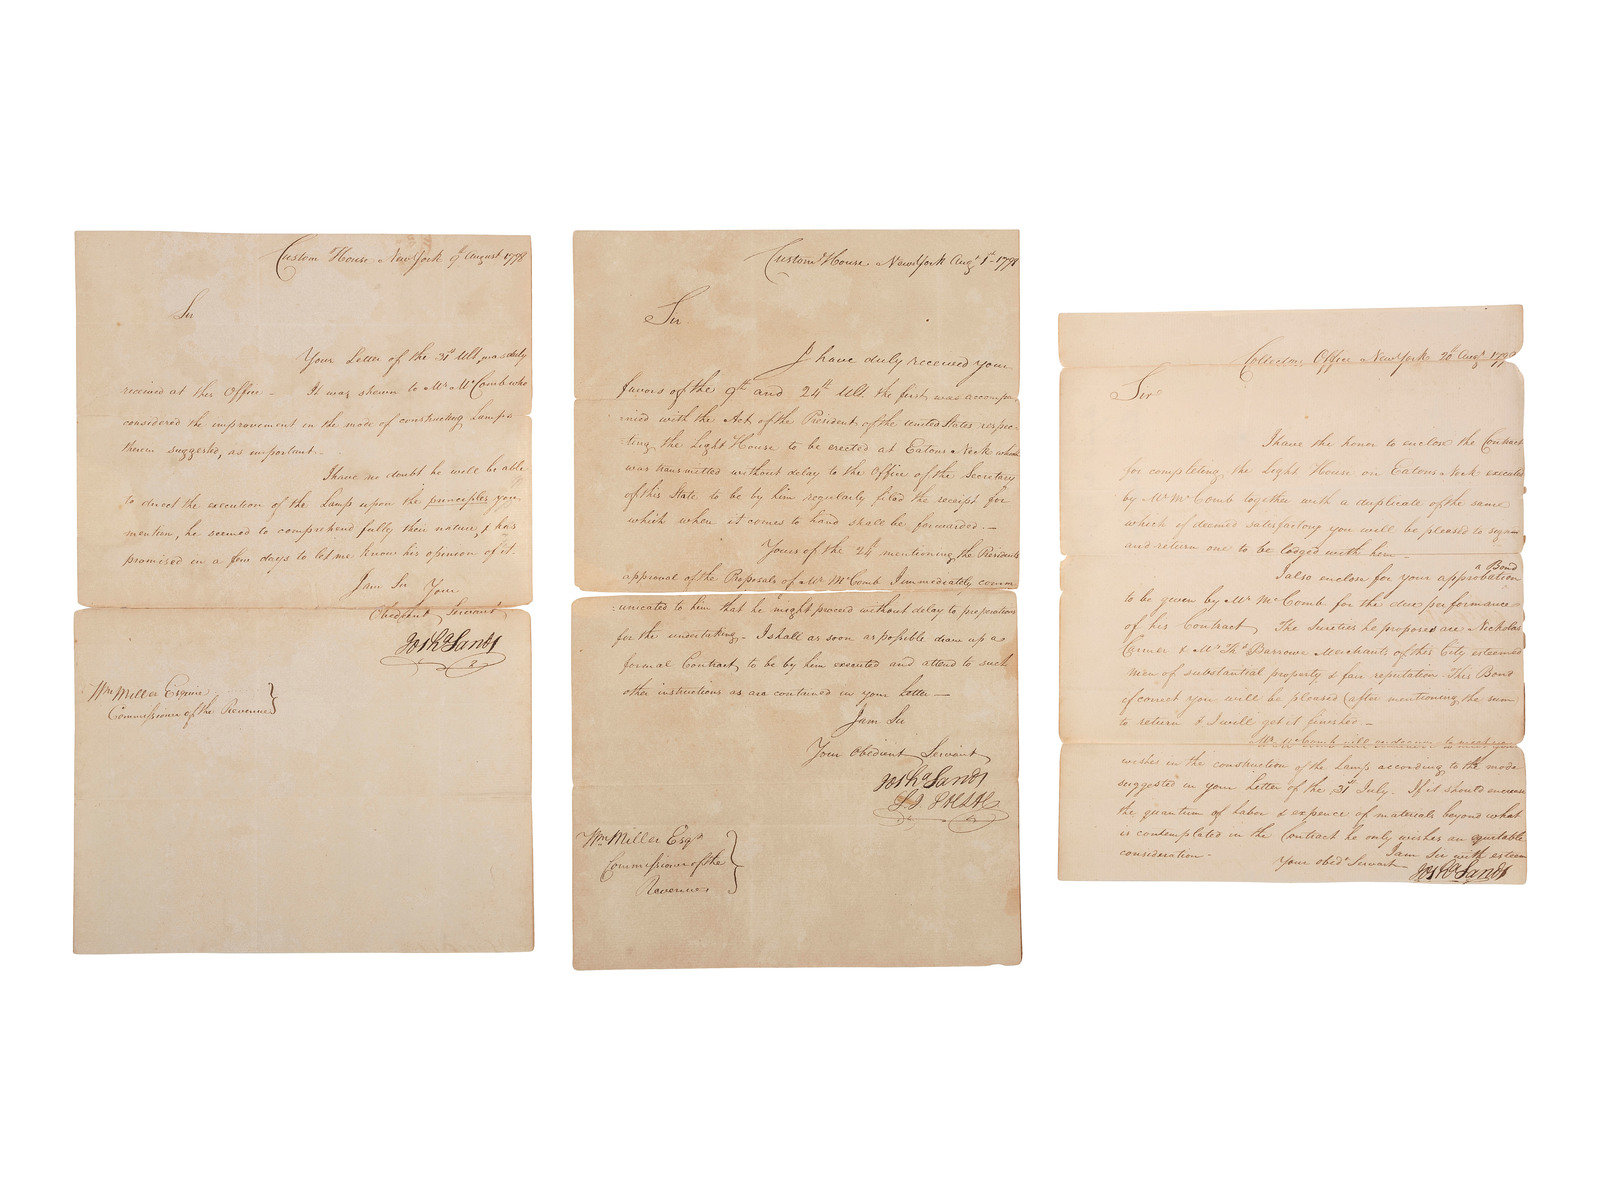 Custom House New York 9th August 1798
Sir
Your Letter of the 31st Ult. was duly
received at this Office - It was shewn to Mr McComb who
considered the improvement in the mode of constructing Lamps
therein suggested, as important -
I have no doubt he will be able
to direct the execution of the Lamp upon the principles you
mention, he seemed to comprehend fully their nature, & has
promised in a few days to let me know his opinion of it.
I am Sir Your
Obedient Servant
Josha Sands
Wm Miller Esquire
Commissioner of the Revenue
Custom House New York Augt 1st 1798
Sir
I have duly received your
favors of the 9th and 24th Ult. the first was accompa
nied with the Act of the President of the United States respec
ting the Light House to be erected at Eatons Neck which
was transmitted without delay to the Office of the Secretary
of this State to be by him regularly filed the receipt for
which when it comes to hand shall be forwarded -
Yours of the 24th mentioning the Presidents
approval of the Proposals of Mr McComb I immediately comm
unicated to him that he might proceed without delay to preparations
for the undertaking - I shall as soon as possible draw up a
formal Contract to be by him executed and attend to such
other instructions as are contained in your Letter -
I am Sir
Your Obedient Servant
Josha Sands
Wm Miller Esqr
Commissioner of the
Revenue
Collectors Office New York 20th Augt 1798
Sir
I have the honor to enclose the Contract
for completing the Light House on Eatons Neck executed
by Mr McComb together with a duplicate of the same
which if deemed satisfactory you will be pleased to sign
and return one to be lodged with him -
I also enclose for your approbation ^ Bond
to be given by Mr McComb for the due performance
of his Contract The Sureties he proposes are Nicholas
& Mr Thos Barrowe Merchants of this City esteemed
men of substantial property & fair reputation This Bond
if correct you will be pleased (after mentioning the sum
to return & I will get it finished -
Mr McComb will endeavor to meet your
wishes in the construction of the Lamp according to the mode
suggested in your Letter of the 31st July. If it should encrease
the quantum of labor & expence of materials beyond what
is contemplated in the Contract he only wishes an equitable
consideration -
I am Sir with esteem
Your obedt Servant
Josha Sands